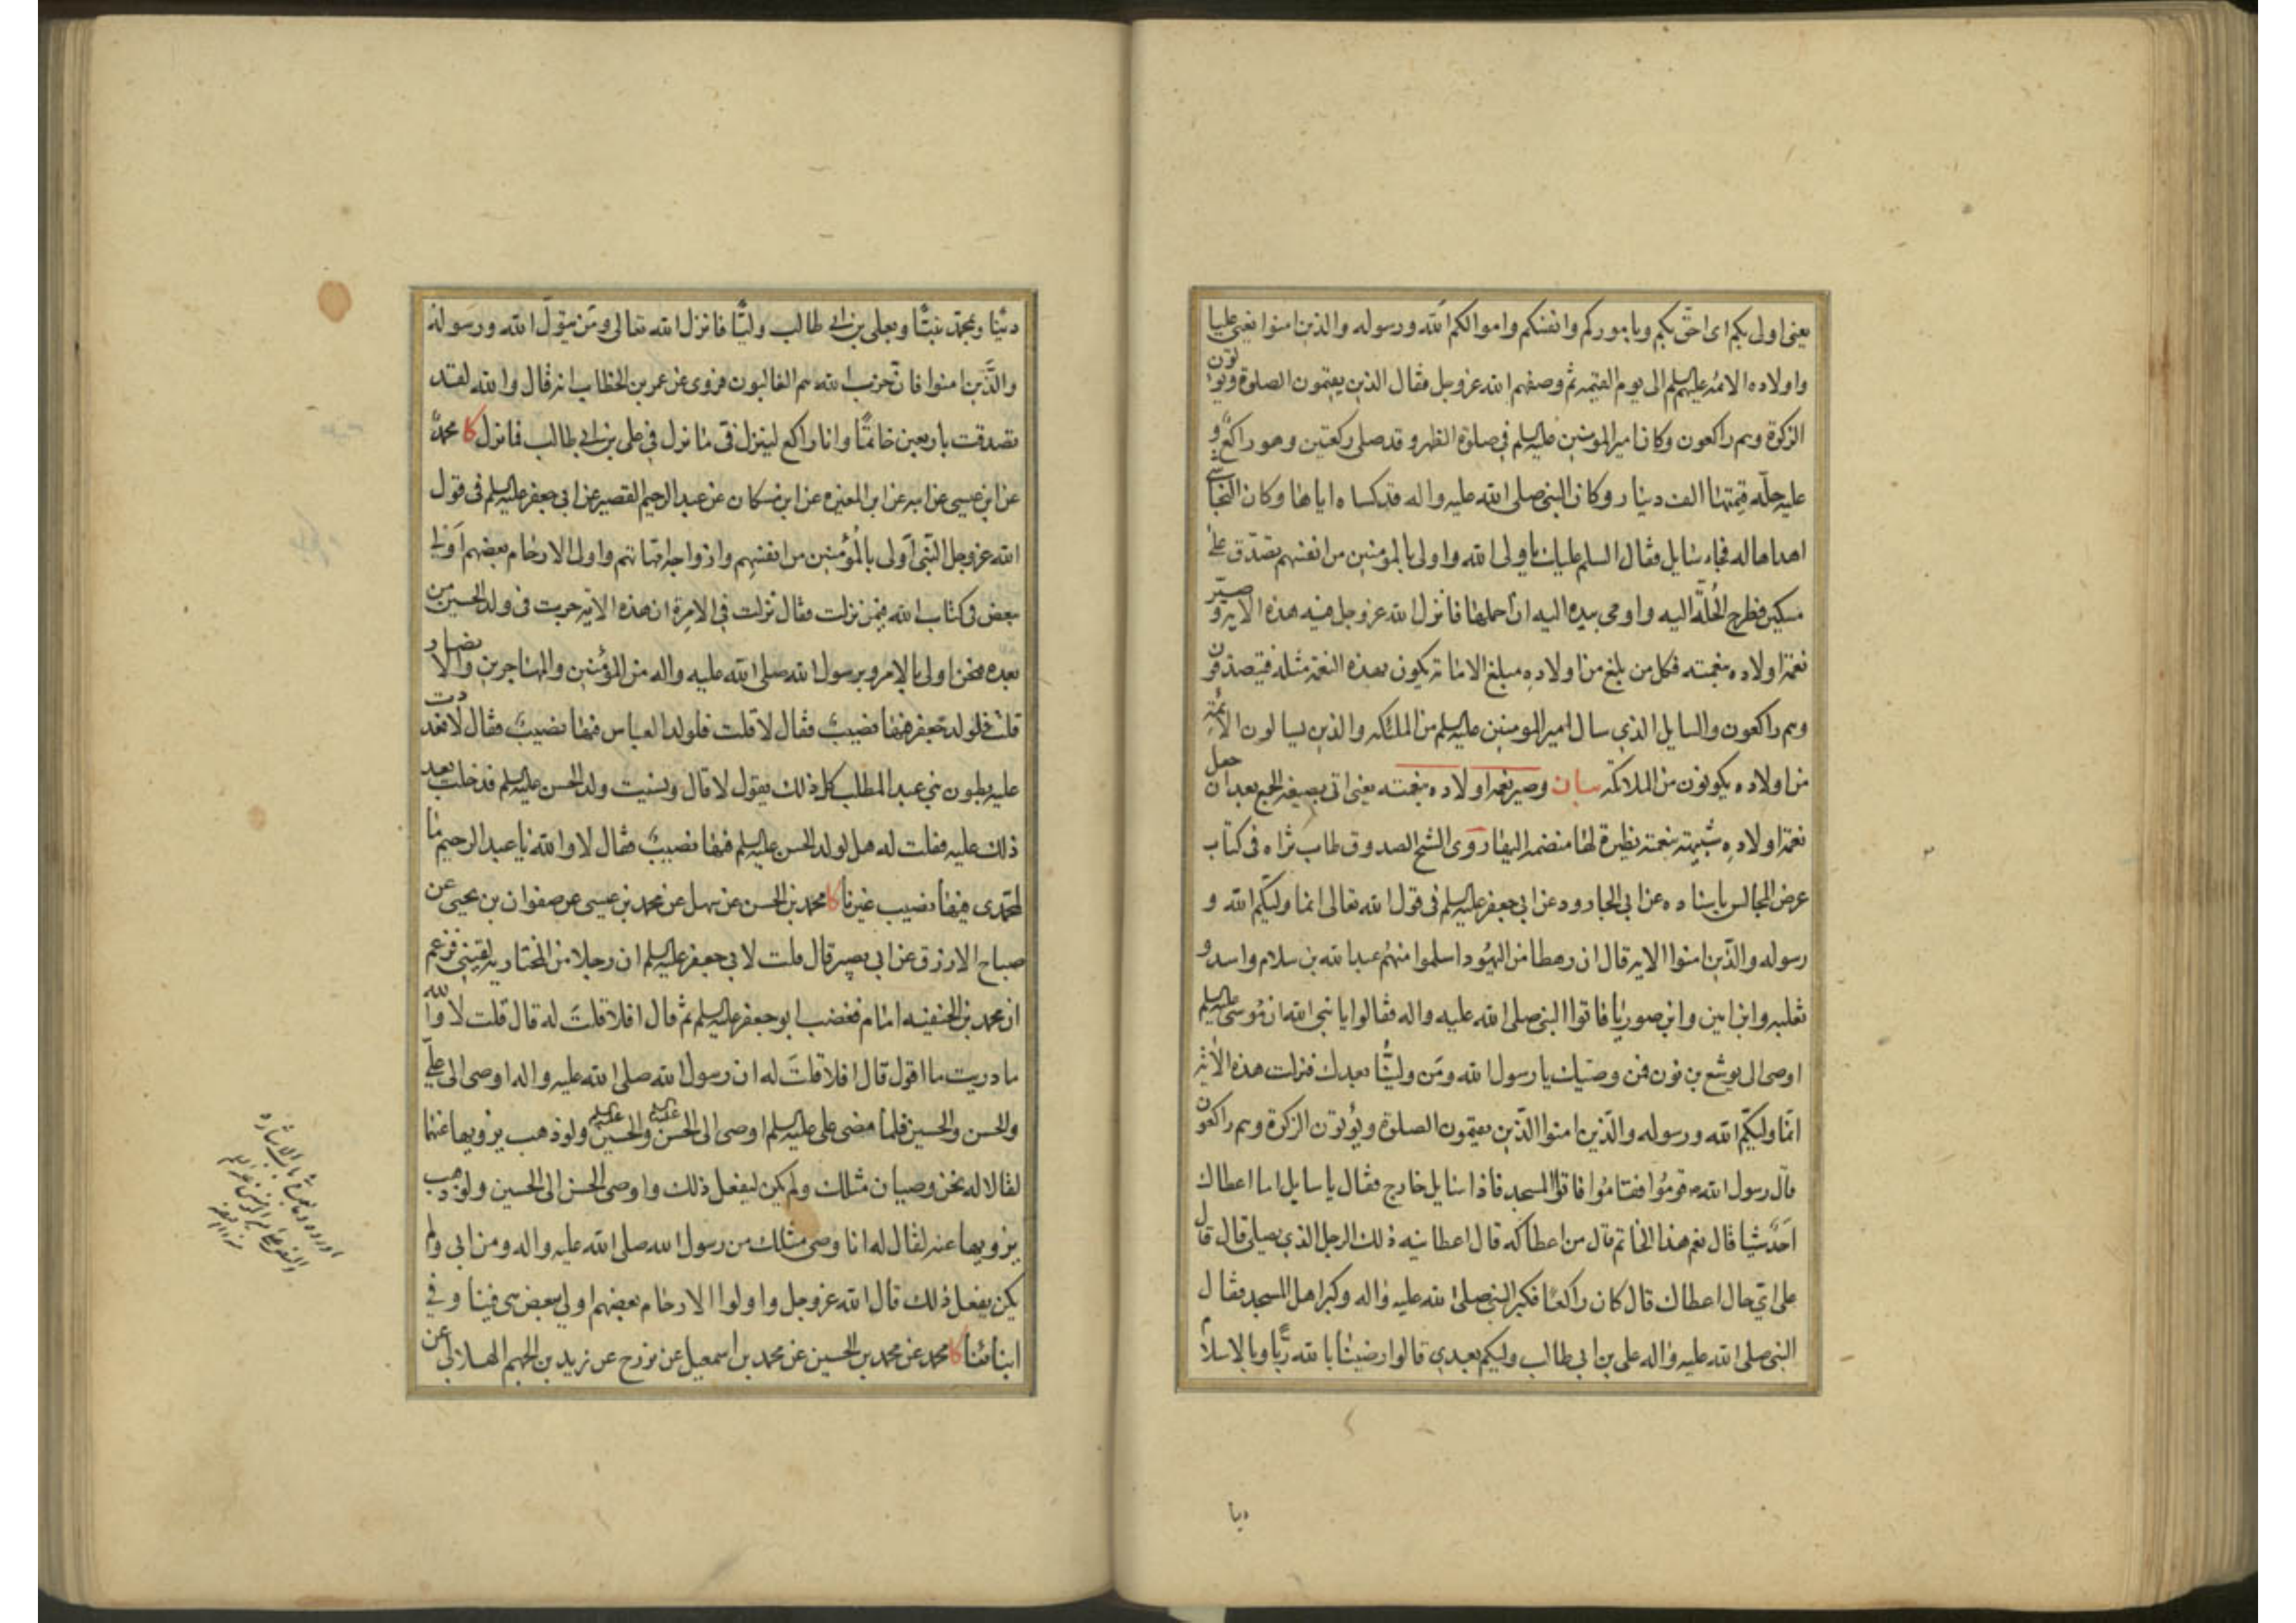 يعنى اولى بكم اى احق بكم وباموركم وانفسكم واموالكم الله ورسوله والذين امنوا يعنى عليا
واولاده الائمة عليهم السلم الى يوم القيمة ثم وصفهم الله عز وجل فقال الذين يقيمون الصلوة ويؤتون
الزكوة وهم راكعون وكان امير المومنين عليه السلم فى صلوة الظهر وقد صلى ركعتين وهو راكع و
عليه حلة قيمتها الف دينار وكان النبى صلى الله عليه واله قد كساه اياها وكان النجاشى
اهداها له فجاء سايل فقال السلم عليك يا ولى الله واولى بالمومنين من انفسهم تصدق على
مسكين فطرح الحلة اليه واومى بيده اليه ان احملها فانزل الله عز وجل فيه هذه الاية وصير
نعمة اولاده بنعمته فكل من بلغ من اولاده مبلغ الامامة يكون بهذه النعمة مثله فيتصدقون
وهم راكعون والسايل الذى سال امير المومنين عليه السلم من الملئكة والذين يسالون الائمة
من اولاده يكونون من الملائكة بيان وصير نعمة اولاده بنعمته يعنى اتى بصيغة الجمع بعد ان جعل
نعمة اولاده شبيهة بنعمته نظيرة لها منضمة اليها روى الشيخ الصدوق طاب ثراه فى كتاب
عرض المجالس باسناده عن ابى الجارود عن ابى جعفر عليه السلم فى قول الله تعالى انما وليكم الله و
رسوله والذين امنوا الاية قال ان رهطا من اليهود اسلموا منهم عبد الله بن سلام واسد و
ثعلبه وابن امين وابن صوريا فاتوا النبى صلى الله عليه واله فقالوا يا نبى الله ان موسى عليه السلم
اوصى الى يوشع بن نون فمن وصيك يا رسول الله ومن ولينا بعدك فنزلت هذه الاية
انما وليكم الله ورسوله والذين امنوا الذين يقيمون الصلوة ويؤتون الزكوة وهم راكعون
قال رسول الله ص قوموا فقاموا فاتوا المسجد فاذا سايل خارج فقال يا سايل اما اعطاك
احد شيا قال نعم هذا الخاتم قال من اعطاكه قال اعطانيه ذلك الرجل الذى يصلى قال
على اى حال اعطاك قال كان راكعا فكبر النبى صلى الله عليه واله وكبر اهل المسجد فقال
النبى صلى الله عليه واله على بن ابى طالب وليكم بعدى قالوا رضينا بالله ربا وبالاسلام
دينا وبمحمد نبيا وبعلى بن ابى طالب وليا فانزل الله تعالى ومن يتول الله ورسوله
والذين امنوا فان حزب الله هم الغالبون فروى عن عمر بن الخطاب انه قال والله لقد
تصدقت باربعين خاتما وانا راكع لينزل فى ما نزل فى على بن ابى طالب فما نزل كا محمد
عن ابن عيسى عن ابيه عن ابن المغيره عن ابن مسكان عن عبد الرحيم القصير عن ابى جعفر عليه السلم فى قول
الله عز وجل النبى اولى بالمؤمنين من انفسهم وازواجه امهاتهم واولى الارحام بعضهم اولى
ببعض فى كتاب الله فيمن نزلت فقال نزلت فى الامرة ان هذه الاية جرت فى ولد الحسين من
بعده فنحن اولى بالامر وبرسول الله صلى الله عليه واله من المؤمنين والمهاجرين والانصار
قلت فلولد جعفر فيها نصيب فقال لا قلت فلولد العباس فيها نصيب فقال لا فعددت
عليه بطون بنى عبد المطلب كل ذلك يقول لا قال ونسيت ولد الحسن عليه السلم فدخلت بعد
ذلك عليه فقلت له هل لولد الحسن عليه السلم فيها نصيب فقال لا والله يا عبد الرحيم ما
لمحمدى فيها نصيب غيرنا كا محمد بن الحسن عن سهل عن محمد بن عيسى عن صفوان بن يحيى عن
صباح الازرق عن ابى بصير قال قلت لابى جعفر عليه السلم ان رجلا من المختاريه لقينى فزعم
ان محمد بن الحنفيه امام فغضب ابو جعفر عليه السلم ثم قال افلا قلت له قال قلت لا والله
ما دريت ما اقول قال افلا قلت له ان رسول الله صلى الله عليه واله اوصى الى على
والحسن والحسين فلما مضى على عليه السلم اوصى الى الحسن عليه السلم والحسين عليه السلم ولو ذهب يزويها عنهما
لقالا له نحن وصيان مثلك ولم يكن ليفعل ذلك واوصى الحسن الى الحسين ولو ذهب
يزويها عنه لقال له انا وصى مثلك من رسول الله صلى الله عليه واله ومن ابى ولم
يكن ليفعل ذلك قال الله عز وجل واولوا الارحام بعضهم اولى ببعض هى فينا وفى
ابنائنا كا محمد عن محمد بن الحسين عن محمد بن اسمعيل عن بزرج عن زيد بن الجهم الهلالى عن